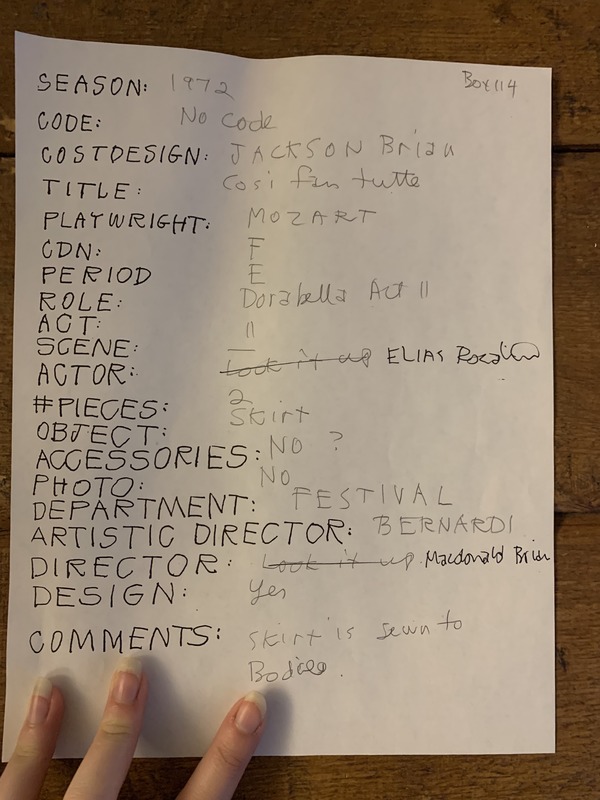 SEASON: 1972
Box 114
CODE: No Code
COSTDESIGN: JACKSON Brian
TITLE: Cosi fan tutte
PLAYWRIGHT: MOZART
CDN: F
PERIOD E
ROLE: Dorabella Act II
ACT: II
SCENE: —
ACTOR: Look it up ELIAS Rosalind
#PIECES: 2
OBJECT: Skirt
ACCESSORIES: NO ?
PHOTO: NO
DEPARTMENT: FESTIVAL
ARTISTIC DIRECTOR: BERNARDI
DIRECTOR: Look it up Macdonald Brian
DESIGN: Yes
COMMENTS: Skirt is sewn to
Bodice.